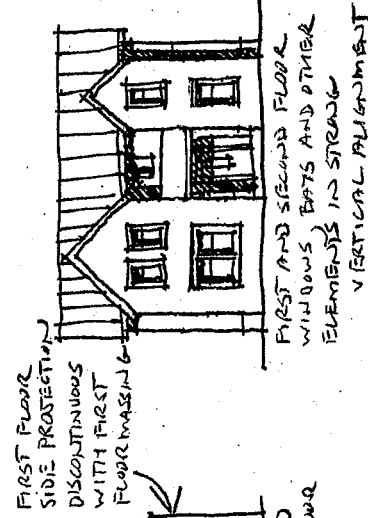 FIRST FLOOR
SIDE PROJECTION
DISCONTINUOUS
WITH FIRST
FLOOR MASSING
FIRST AND SECOND FLOOR
WINDOWS, BAYS AND OTHER
ELEMENTS IN STRONG
VERTICAL ALIGNMENT